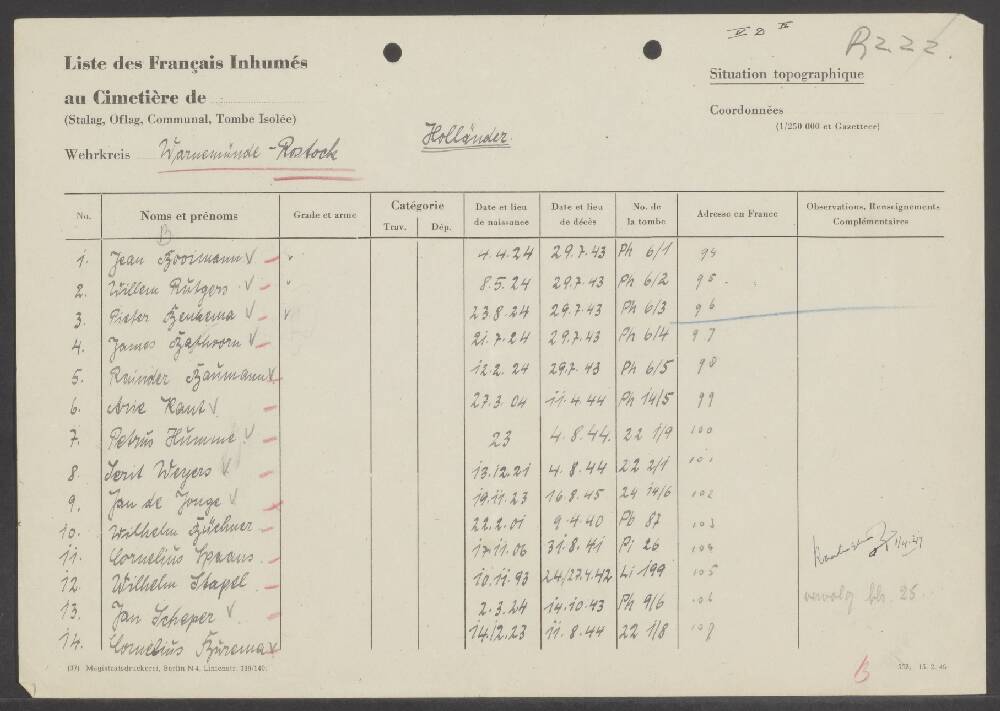 V D IV
R 222.
Liste des Français Inhumés
au Cimetière de
(Stalag, Oflag, Communal, Tombe Isolée)
Wehrkreis Warnemünde - Rostock
Holländer.
Situation topographique
Coordonnées
(1/250 000 et Gazetteer)
No. Noms et prénoms Grade et arme Catégorie Trav. Dép. Date et lieu de naissance Date et lieu de décès No. de la tombe Adresse en France Observations, Renseignements Complémentaires
B
1. Jean Boosmann V 4.4.24 29.7.43 Ph 6/1 94
2. Willem Rutgers V 8.5.24 29.7.43 Ph 6/2 95
3. Pieter Benkema V 23.8.24 29.7.43 Ph 6/3 96
4. James Bathoorn V 21.7.24 29.7.43 Ph 6/4 97
5. Reinder Baumann V 12.2.24 29.7.43 Ph 6/5 98
6. Arie Kant V 27.3.04 11.4.44 Ph 14/5 99
7. Petrus Humme V 23 4.8.44. 22 1/9 100
8. Gerit Weyers V 13.12.21 4.8.44 22 2/1 101
9. Jan de Jonge V 19.11.23 16.8.45 24 14/6 102
10. Wilhelm Büchner 22.2.01 9.4.40 Pb 87 103
11. Cornelius Spaans 17.11.06 31.8.41 Pi 26 104
12. Wilhelm Stapel 10.11.93 24/27.4.42 Li 199 105
13. Jan Scheper V 2.3.24 14.10.43 Ph 9/6 106
14. Cornelius Burema V 14.12.23 11.8.44 22 1/8 107
vervolg blz. 25
(37) Magistratsdruckerei, Berlin N 4, Linienstr. 139/140.
B
15. 2. 46